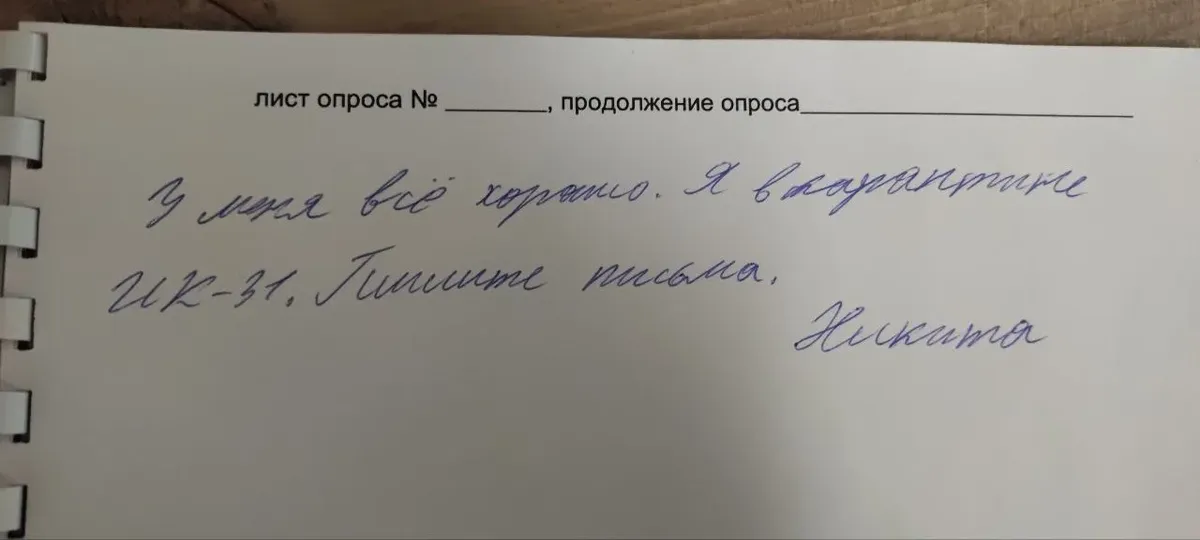 лист опроса № ________, продолжение опроса__________________________
У меня всё хорошо. Я в карантине
ИК-31. Пишите письма.
Никита